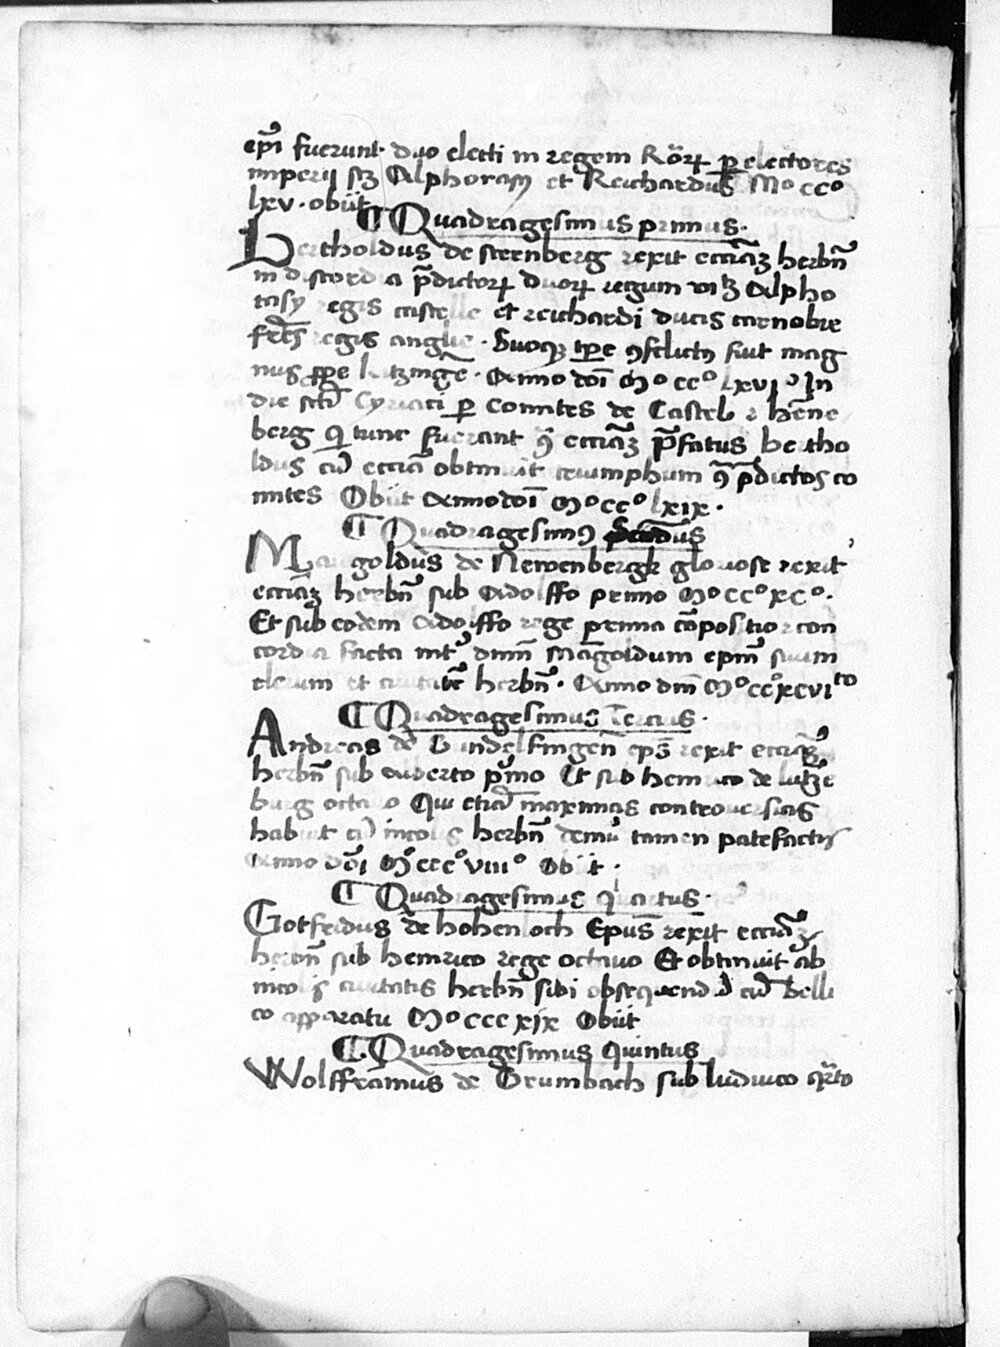 ep̄i fuerunt duo electi in regem Rōꝝ ꝑ electores
imperii sꝫ Alphonsꝫ et Reichardus Mº ccº
lxv · obiit
¶ Quadragesimus primus ·
Bertholdus de sternberg rexit eccīaꝫ herbn̄
in discordia p̄dictoꝝ duoꝝ regum vitꝫ Alpho
regis castelle et reichardi ducis cornobie
fr̄es regis anglie · Suoqꝫ tp̄e ꝯflictꝰ fuit mag
nus ꝓpe kitzingē · Anno dōi Mº ccº lxviº In
die scī Cyriaci ꝑ Comites de Castel ꝛ hēne
berg qͥ tunc fuerant ꝯ̄ eccīaꝫ p̄fatus bertho
ldus cū eccīa obtinuit triumphum ꝯ̄ p̄dictos co
mites Obiit Anno dōi Mº ccº lxix ·
¶ Quadragesimꝰ Secūdus
Mangoldus de Newenbergk gloriose rexit
eccīaꝫ herbn̄ sub Adolffo primo Mº ccº xcº ·
Et sub eodem Adolffo rege prima cōpositio ꝛ con
cordia facta int̕ dnm̄ Māgoldum epm̄ suum
clerum et ciuitatē herbn̄ · Anno dn̄i Mº ccº xcviᵗᵒ
¶ Quadragesimus Tercius ·
Andreas de Gundelfingen̄ ep̄s rexit eccīaꝫ
herbn̄ sub Alberto pͥmo Et sub henrico de lutzē
burg octauo Qui etiā maximas controuersias
habuit cū incolis herbn̄ demū tamen patefactis
Anno dōi Mº cccº viiiº Obiit ·
¶ Quadragesimus qͣrtus ·
Gotfridus de hohenloch Epūs rexit eccīaꝫ
herbn̄ sub henrico rege octauo Et obtinuit ab
incolis ciuitatis herbn̄ sibi obsequendū cū belli
co apparatu Mº ccc xix Obiit
¶ Quadragesimus Quintus
Wolfframus de Grumbach sub ludwico qͣrto